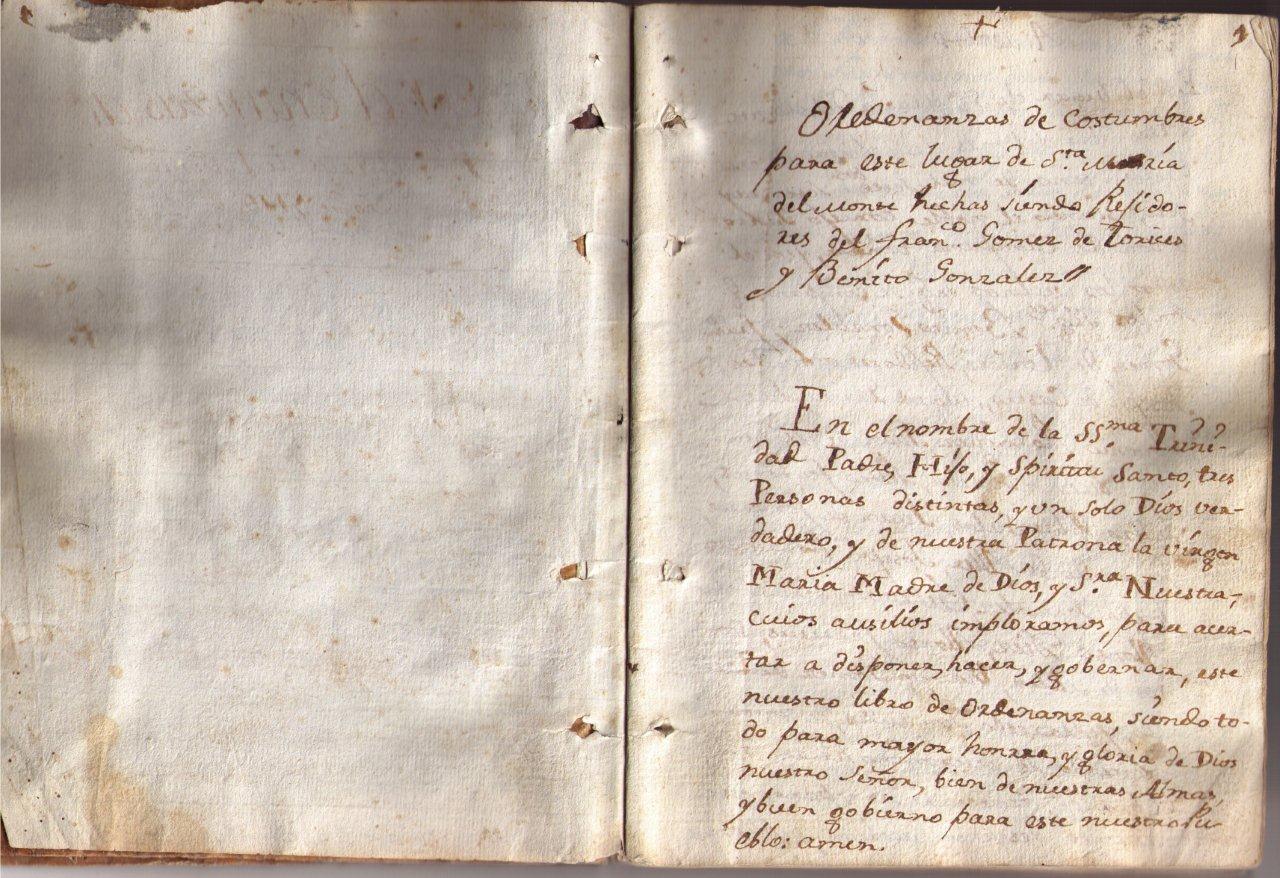 +
1
Ordenanzas de Costumbres
para este lugar de S.ta Maria
del Monte hechas siendo Regido-
res del fran.co Gomez de Torices
y Benito Gonzalez //
En el nombre de la SS.ma Trini-
dad Padre, Hijo, y Spiritu Santo, tres
Personas distintas, y un solo Dios ver-
dadero, y de nuestra Patrona la virgen
Maria Madre de Dios, y S.ra Nuestra,
cuios ausilios imploramos, para acer-
tar a disponer, hacer, y gobernar, este
nuestro libro de Ordenanzas, siendo to-
do para mayor honrra, y gloria de Dios
nuestro Señor, bien de nuestras Almas,
y buen gobierno para este nuestro Pu
eblo: amen.